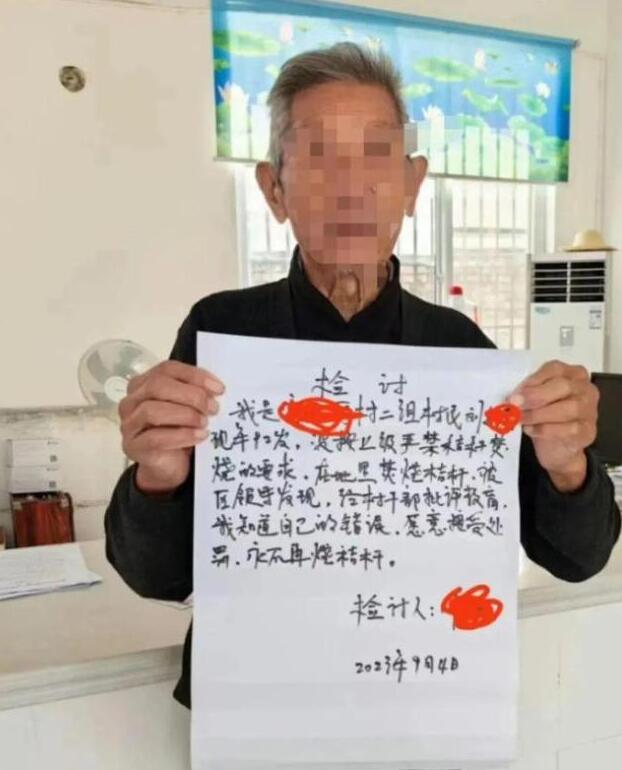 检讨
我是村二组村民刘
现年92岁，没按上级严禁秸秆焚
烧的要求，在地里焚烧秸秆，被
区领导发现，给村干部批评教育，
我知道自己的错误，愿意接受处
罚，永不再烧秸秆。
检讨人：
2023年9月4日